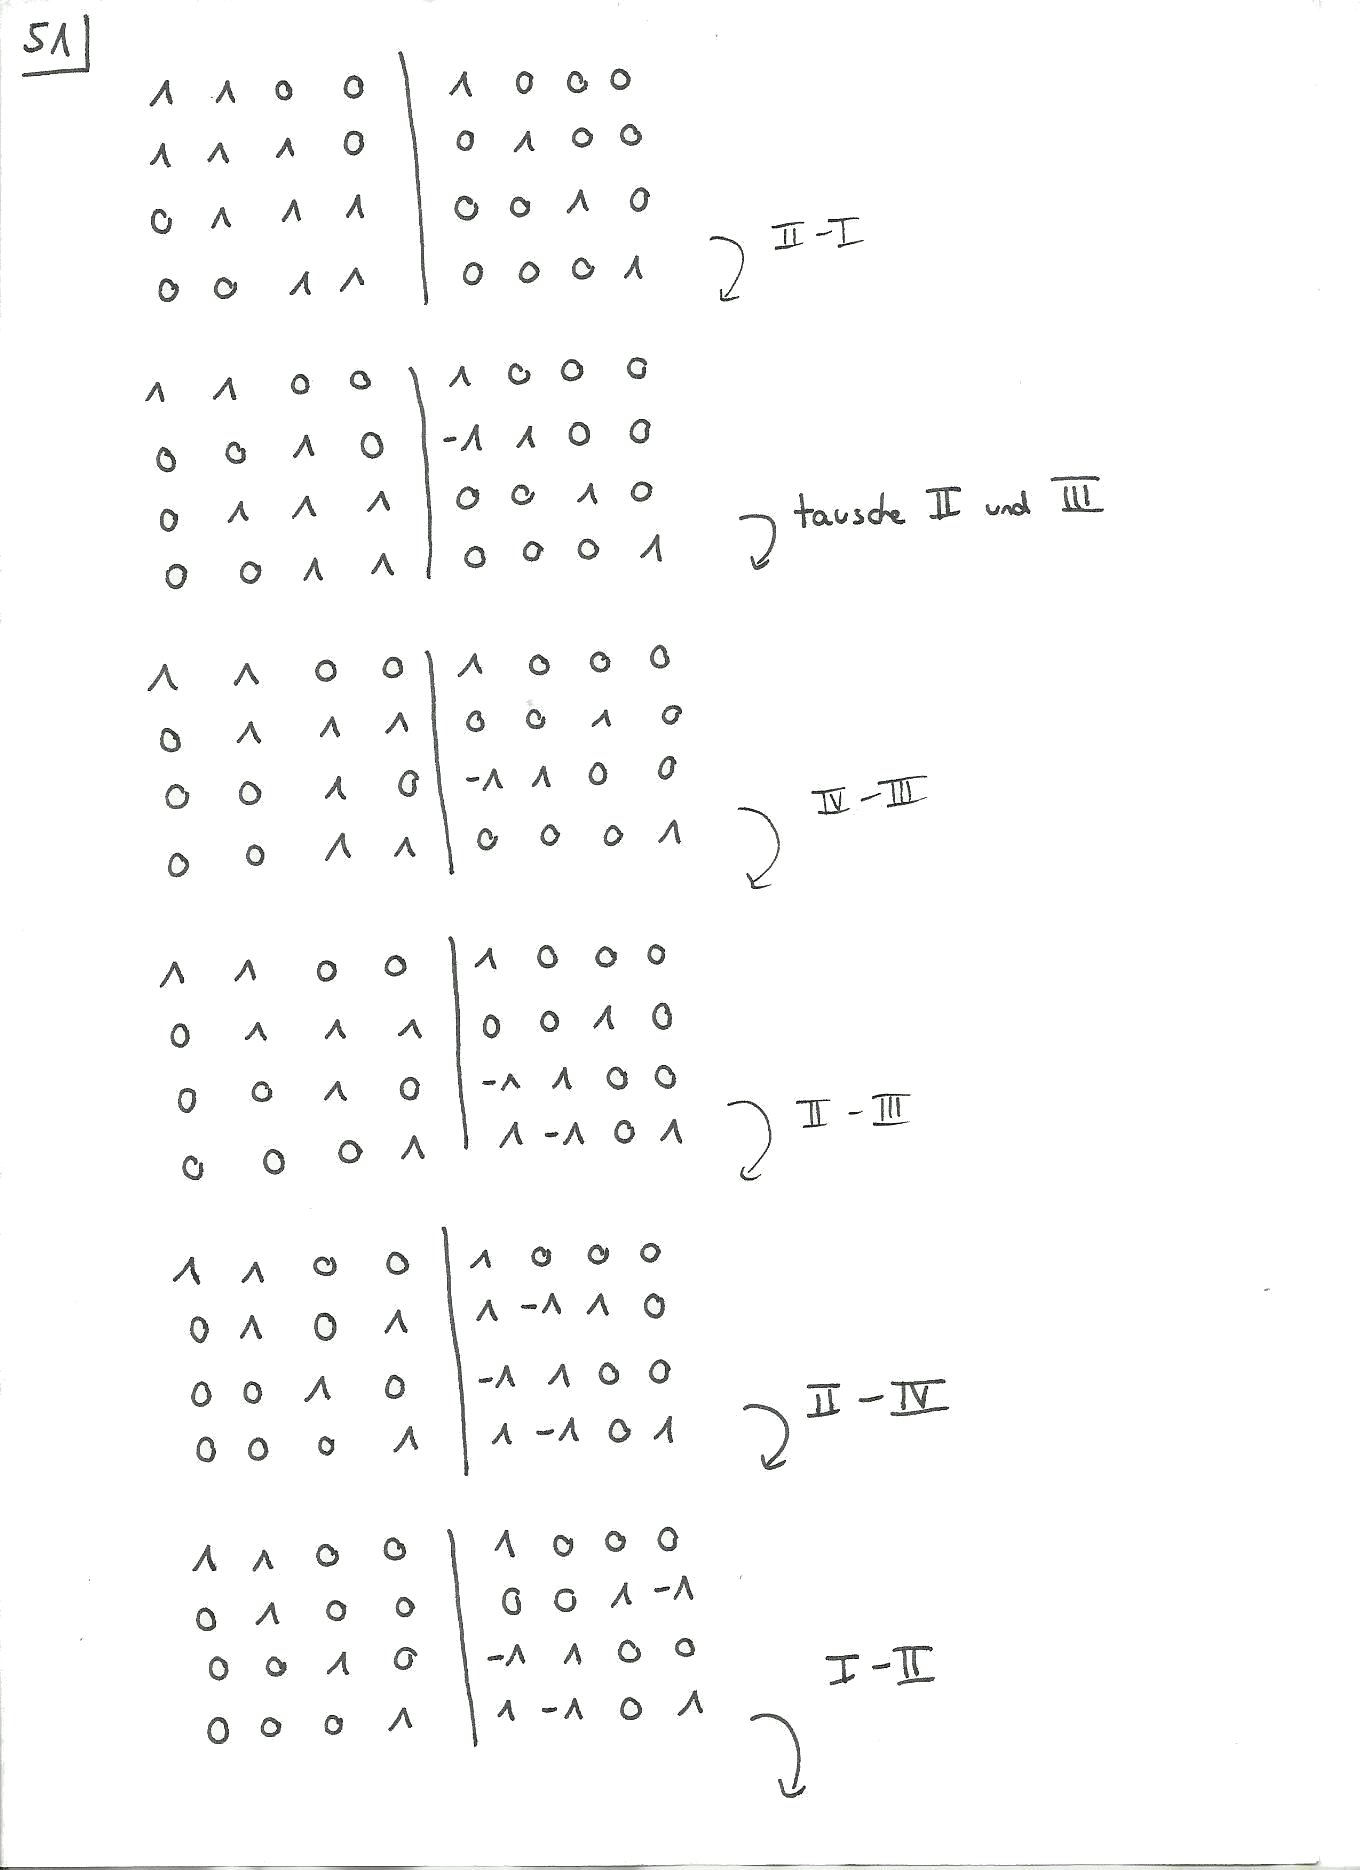 51
1 1 0 0 | 1 0 0 0
1 1 1 0 | 0 1 0 0
0 1 1 1 | 0 0 1 0
II - I
0 0 1 1 | 0 0 0 1
1 1 0 0 | 1 0 0 0
0 0 1 0 | -1 1 0 0
0 1 1 1 | 0 0 1 0
tausche II und III
0 0 1 1 | 0 0 0 1
1 1 0 0 | 1 0 0 0
0 1 1 1 | 0 0 1 0
0 0 1 0 | -1 1 0 0
IV - III
0 0 1 1 | 0 0 0 1
1 1 0 0 | 1 0 0 0
0 1 1 1 | 0 0 1 0
0 0 1 0 | -1 1 0 0
II - III
0 0 0 1 | 1 -1 0 1
1 1 0 0 | 1 0 0 0
0 1 0 1 | 1 -1 1 0
0 0 1 0 | -1 1 0 0
II - IV
0 0 0 1 | 1 -1 0 1
1 1 0 0 | 1 0 0 0
0 1 0 0 | 0 0 1 -1
0 0 1 0 | -1 1 0 0
I - II
0 0 0 1 | 1 -1 0 1